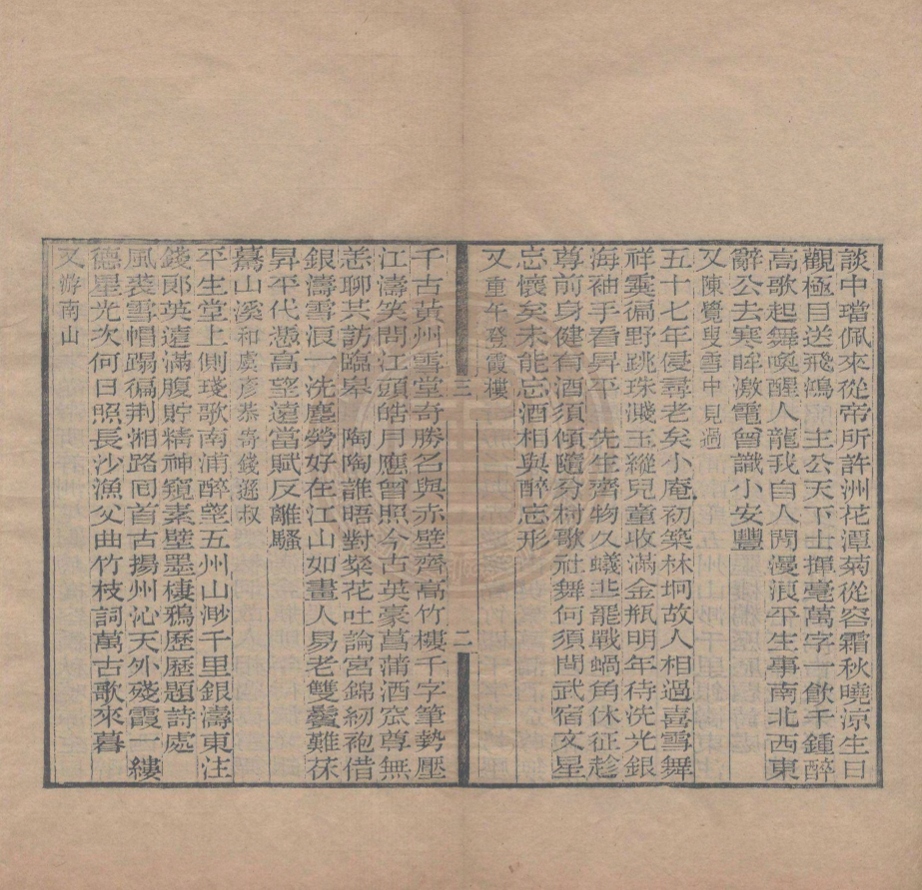 談中璫佩來從帝所許洲花潭菊從容霜秋曉涼生日
觀極目送飛鴻 主公天下士揮毫萬字一飲千鍾醉
高歌起舞喚醒人龍我自人閒漫浪平生事南北西東
辭公去寒眸激電曾識小安豐
又陳覽叟雪中見過
五十七年侵尋老矣小庵初築林坰故人相過喜雪舞
祥霙徧野跳珠濺玉縱兒童收滿金瓶明年待洗光銀
海袖手看昇平 先生齋物久蟻非罷戰蝸角休征趁
尊前身健有酒須傾隨分村歌社舞何須問武宿文星
忘懷矣未能忘酒相與醉忘形
又重午登霞樓
三
二
千古黃州雪堂奇勝名與赤壁齊高竹樓千字筆勢壓
江濤笑問江頭皓月應曾照今古英豪菖蒲酒窊尊無
恙聊共訪臨皋 陶陶誰晤對粲花吐論宮錦紉袍借
銀濤雪浪一洗塵勞好在江山如畫人易老雙鬢難茠
昇平代憑高望遠當賦反離騷
驀山溪和虞彥恭寄錢遜叔
平生堂上側琖歌南浦醉望五州山渺千里銀濤東注
錢郎英遠滿腹貯精神窺素壁墨棲鴉歷歷題詩處
風裘雪帽蹋徧荆湘路囘首古揚州沁天外殘霞一縷
德星光次何日照長沙漁父曲竹枝詞萬古歌來暮
又游南山